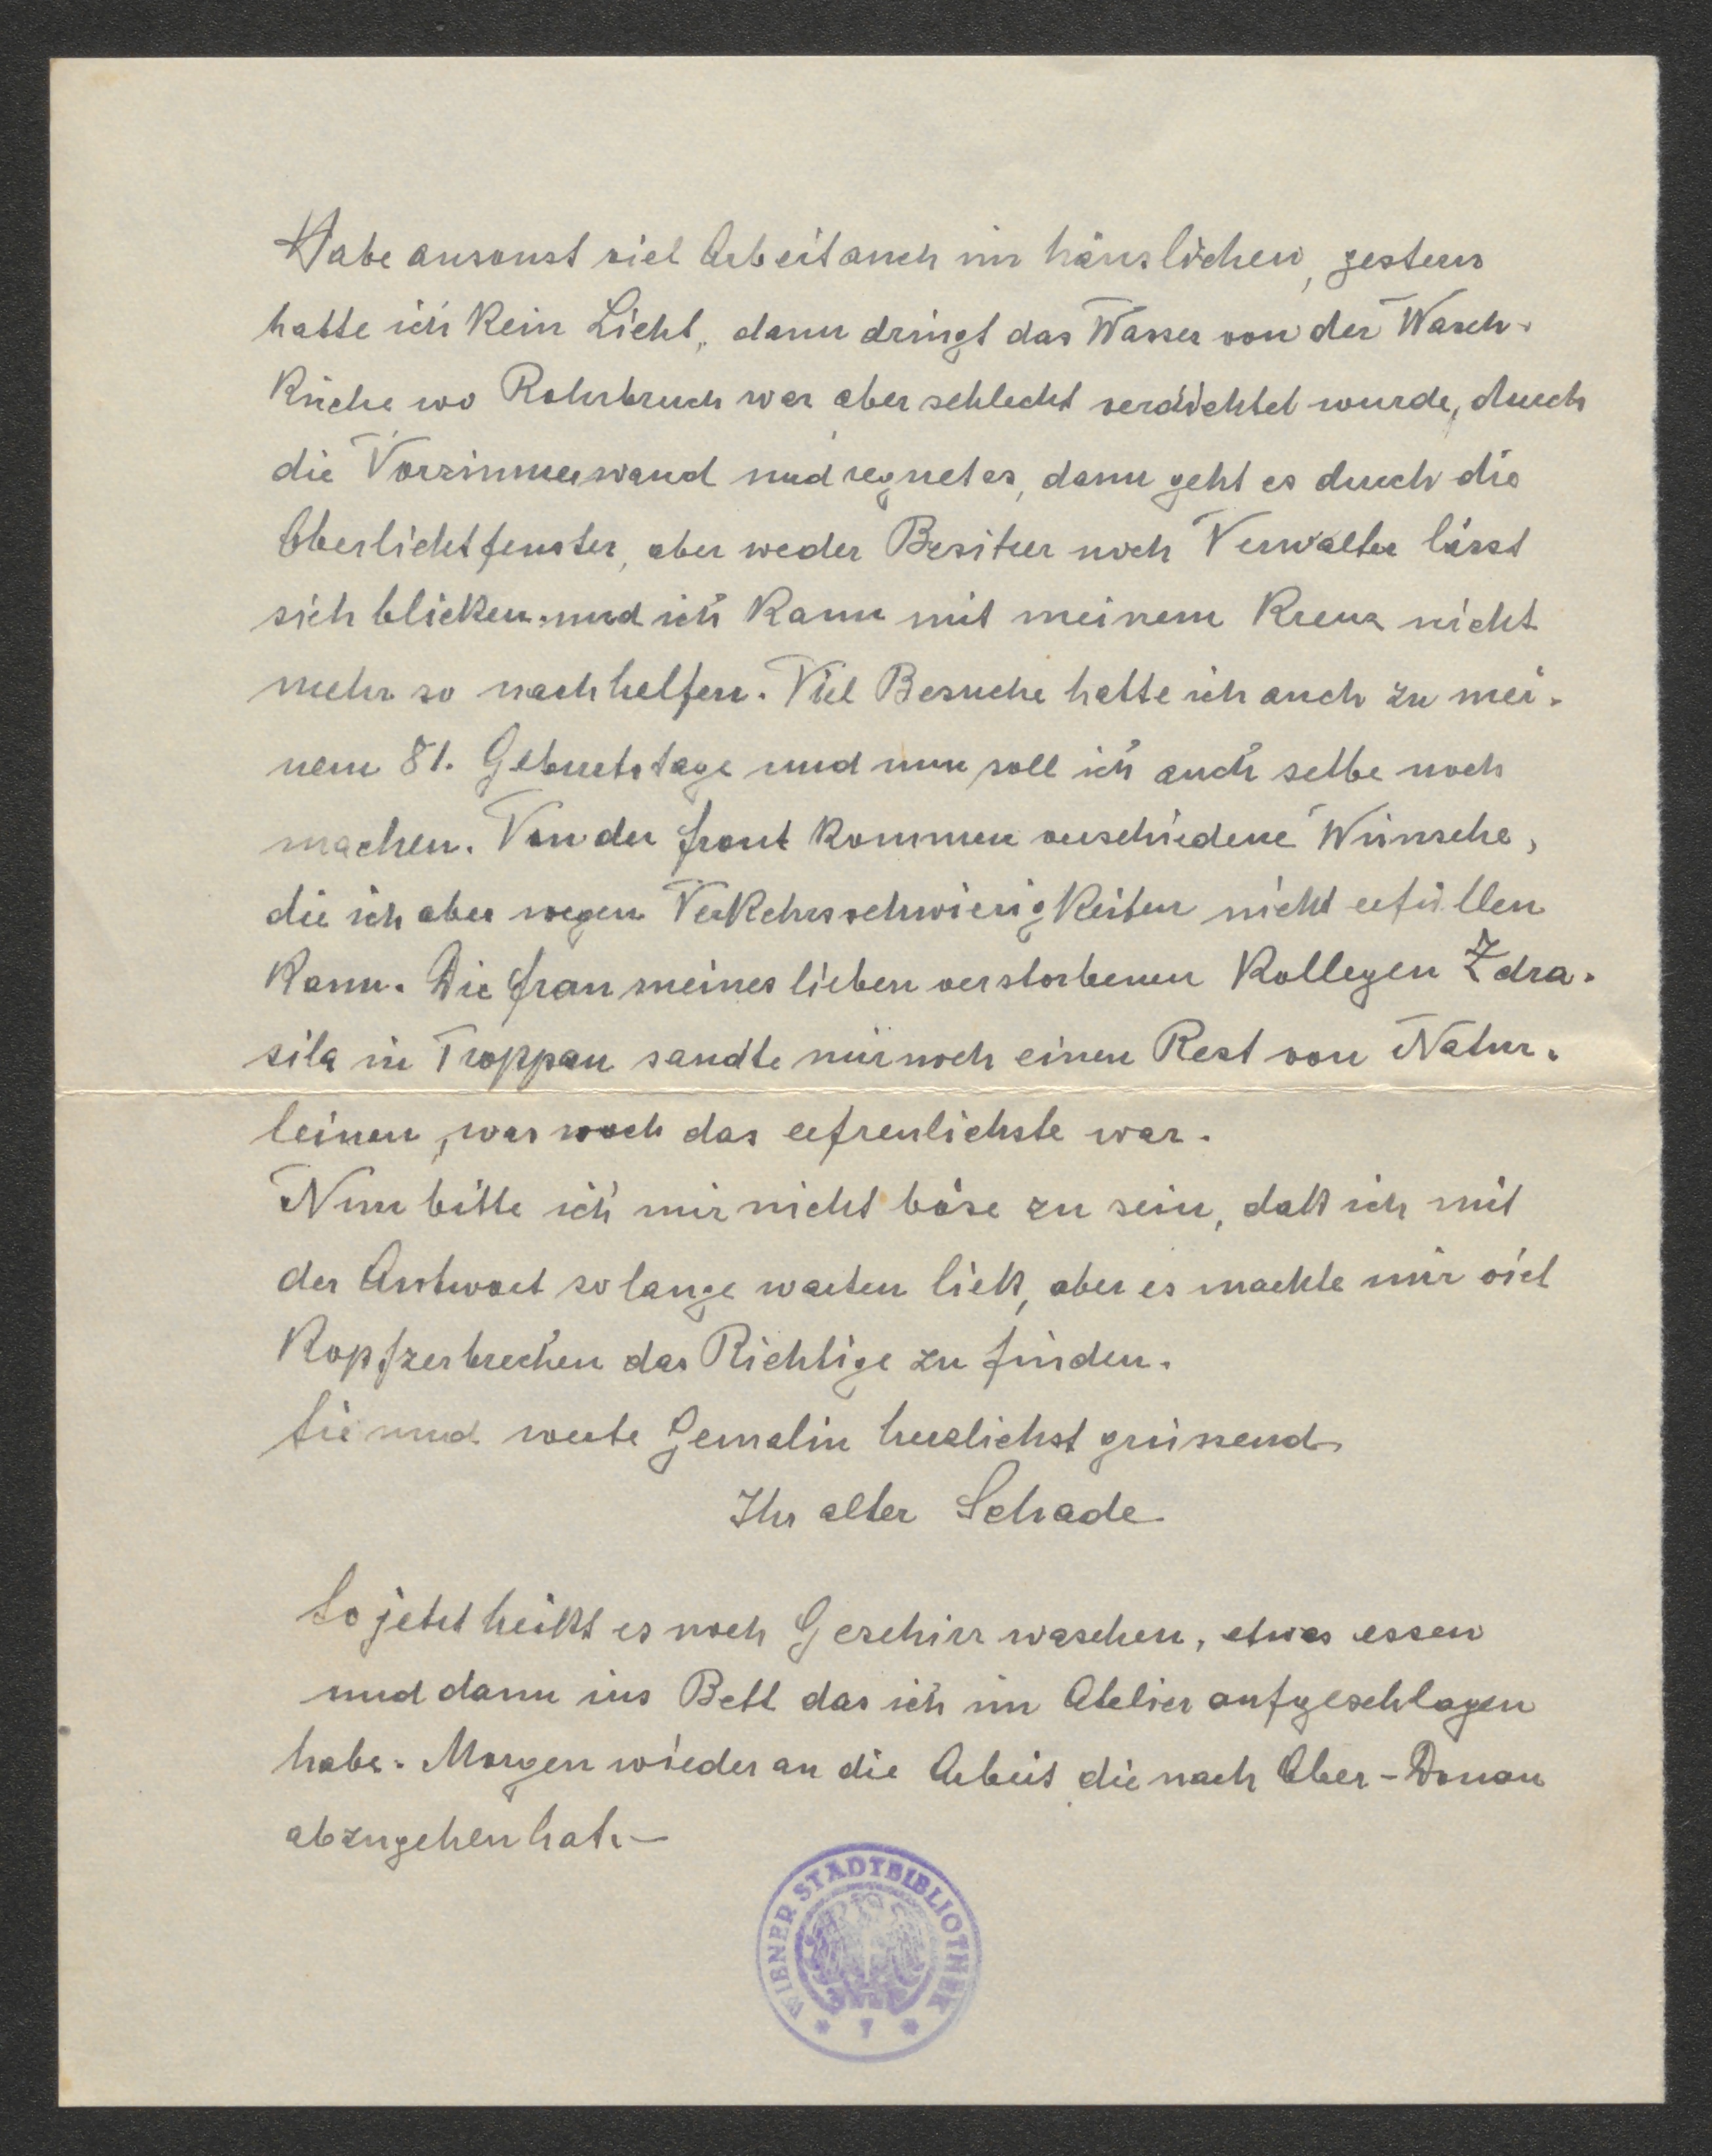 Habe ansonst viel Arbeit auch im häuslichen, gestern
hatte ich kein Licht, dann dringt das Wasser von der Wasch-
küche wo Rohrbruch war aber schlecht verdichtet wurde, durch
die Vorzimmerwand und regnet es, dann geht es durch die
Oberlichtfenster, aber weder Besitzer noch Verwalter lässt
sich blicken und ich kann mit meinem Kreuz nicht
mehr so nachhelfen. Viel Besuche hatte ich auch zu mei-
nem 81. Geburtstage und nun soll ich auch selbe noch
machen. Von der Front kommen verschiedene Wünsche,
die ich aber wegen Verkehrsschwierigkeiten nicht erfüllen
kann. Die Frau meines lieben verstorbenen Kollegen Zdra-
sila in Troppau sandte mir noch einen Rest von Natur-
leinen, was noch das erfreulichste war.
Nun bitte ich mir nicht böse zu sein, daß ich mit
der Antwort so lange warten ließ, aber es machte mir viel
Kopfzerbrechen das Richtige zu finden.
Sie und werte Gemalin herzlichst grüssend
Ihr alter Schade
So jetzt heißt es noch Geschirr waschen, etwas essen
und dann ins Bett das ich im Atelier aufgeschlagen
habe. Morgen wieder an die Arbeit die nach Ober-Donau
abzugehen hat.—
WIENER STADTBIBLIOTHEK
* 7 *